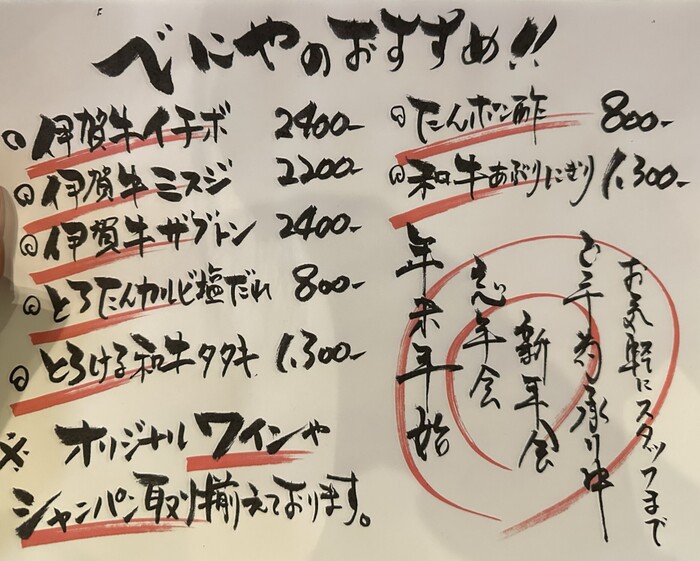 べにやのおすすめ!!
伊賀牛イチボ 2400-
伊賀牛ミスジ 2200-
伊賀牛ザブトン 2400-
とろたんカルビ塩だれ 800-
とろける和牛タタキ 1.300-
たんポン酢 800-
和牛あぶりにぎり 1.300-
※ オリジナルワインや
シャンパン取り揃えております。
年末年始
忘年会
新年会
ご予約承り中
お気軽にスタッフまで